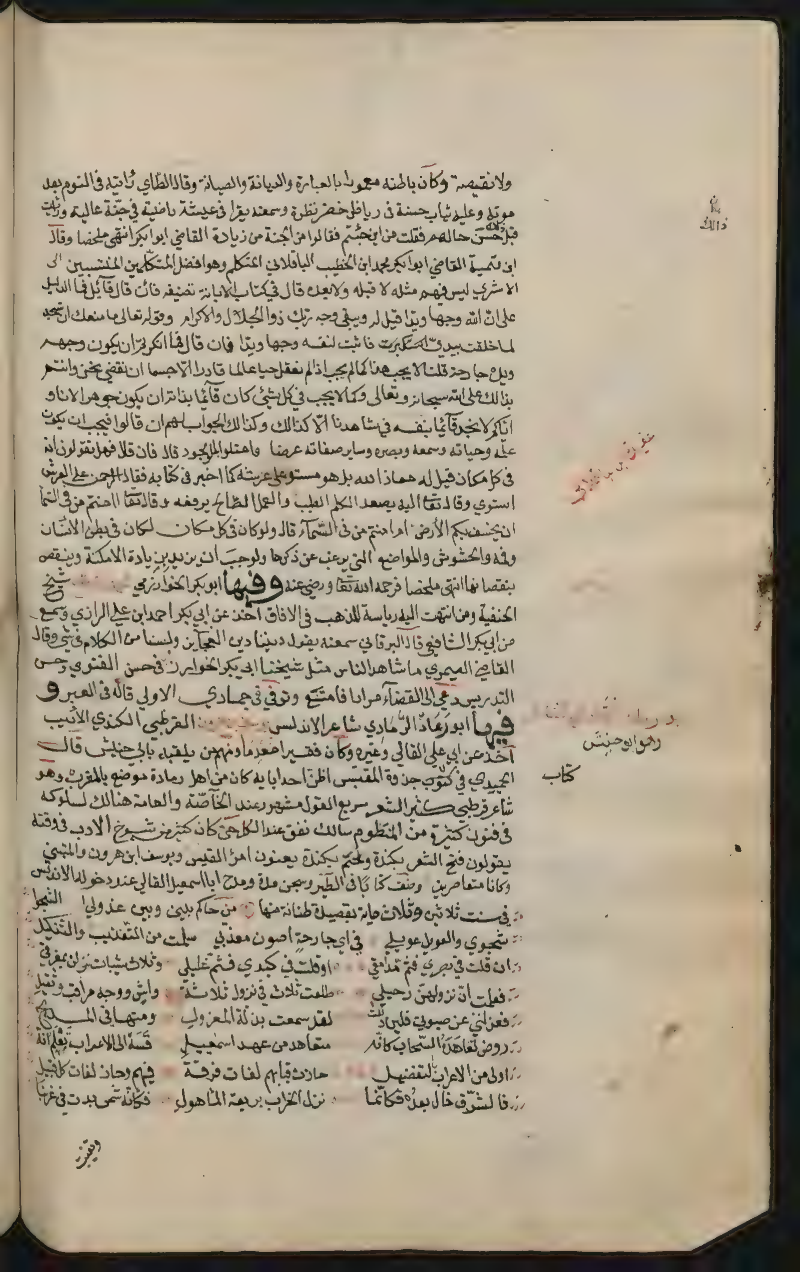 ولا نقيصة وكان باطنه معمورا بالعبادة والديانة والصيانة وقال الطاي رايته في النوم بعد
موته وعليه ثياب حسنة في رياض خضر نظرة وسمعته يقرا في عيشة راضية في جنة عالية ورايت
قبله حسن حالهم فقلت من اين جئتم فقالوا من الجنة من زيادة القاضي ابو بكر انتهى ملخصا وقال
ابن تيمية القاضي ابو بكر محمد ابن الخطيب الباقلاني المتكلم وهو افضل المتكلمين المنتسبين الى
الاشعري ليس فيهم مثله لا قبله ولا بعده قال في كتاب الابانة تصنيفه فان قال قائل فما الدليل
على ان الله وجها ويدا قيل له ويبقى وجه ربك ذو الجلال والاكرام وقوله تعالى ما منعك ان تسجد
لما خلقت بيدي استكبرت فاثبت لنفسه وجها ويدا فان قال فما انكرتم ان يكون وجهه
ويده جارحة قلنا لا يجب هذا كما لم يجب اذا لم نعقل حيا عالما قادرا الا جسما ان نقضي نحن وانتم
بذلك على الله سبحانه وتعالى وكما لا يجب في كل شيئ كان قائما بذاته ان يكون جوهرا لانا و
اياكم لا نجد قائما بنفسه في شاهدنا الا كذالك وكذالك الجواب لهم ان قالوا فيجب ان يكون
علمه وحياته وسمعه وبصره وساير صفاته عرضا واعتلوا بالوجود قال فان قال فهل تقولون انه
في كل مكان قيل له معاذ الله بل هو مستو على عرشه كما اخبر في كتابه فقال الرحمن على العرش
استوى وقال تعا اليه يصعد الكلم الطيب والعمل الصالح يرفعه وقال تعا اامنتم من في السماء
ان يخسف بكم الأرض ام امنتم من في السماء قال ولو كان في كل مكان لكان في بطن الانسان
وفمه والحشوش والمواضع التي يرغب عن ذكرها ولوجب ان يزيد بزيادة الامكنة وينقص
بنقصانها انتهى ملخصا فرحمه الله تعا ورضي عنه وفيها ابو بكر الخوارزمي شيخ
الحنفية ومن انتهت اليه رياسة المذهب في الافاق اخذ عن ابي بكر احمد ابن علي الرازي وسمع
من ابي بكر الشافعي قال البرقاني سمعته يقول ديننا دين العجايز ولسنا من الكلام في شي وقال
القاضي الصيمري ما شاهد الناس مثل شيخنا ابي بكر الخوارزمي في حسن الفتوى وحسن
التدريس دعي الى القضاء مرارا فامتنع وتوفي في جمادي الاولى قاله في العبر و
فيها ابو رماد الرمادي شاعر الاندلس القرطبي الكندي الاديب
اخذ عن ابي علي القالي وغيره وكان فقيرا معدما ومنهم من يلقبه بابي حنيش قال
الحميدي في كتاب جذوة المقتبس اظن احد ابايه كان من اهل رمادة موضع بالمغرب وهو
شاعر قرطبي كثير الشعر سريع القول مشهور عند الخاصة والعامة هنالك لسلوكه
في فنون كثيرة من المنظوم مسالك نفق عند الكل حتى كان كثير من شيوخ الادب في وقته
يقولون فتح الشعر بكندة وختم بكندة يعنون امرئ القيس ويوسف ابن هرون والمتنبي
وكانا متعاصرين وصنف كتابا في الطير وسجن مدة ومدح ابا اسمعيل القالي عند دخوله الاندلس
في سنت ثلاثين وثلاث ماية بقصيدة طنانة منها من حاكم بيني وبين عذولي الشجو
شجوي والعويل عويلي في اي جارحة اصون معذبي سلمت من التعذيب والتنكيل
ان قلت في بصري فثم مدامعي او قلت في كبدي فثم غليلي وثلاث شيبات نزلن بمفرقي
فعلمت ان نزولهن رحيلي طلعت ثلاث في نزول ثلاثة واش ووجه مراقب وثقيل
فعزلنني عن صبوتي فلئن ذللت لقد سمعت بذلة المعزول ومنها في المديح
روض تعاهده السحاب كانه متعاهد من عهد اسمعيل قسه الى الاعراب تعلم انه
اولى من الاعراب بالتفضيل حازت قبايلهم لغات فرقت فيهم وحاز لغات كل قبيل
فالشرق خال بعده فكانما نزل الخراب بربعه الماهول فكانه شمس بدت في غربنا
وتغيبت
ذالك
وهو ابو حنيش
كتاب